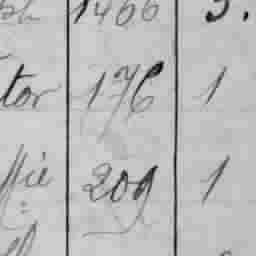 1466 3.
tor 176 1
Mie 209 1